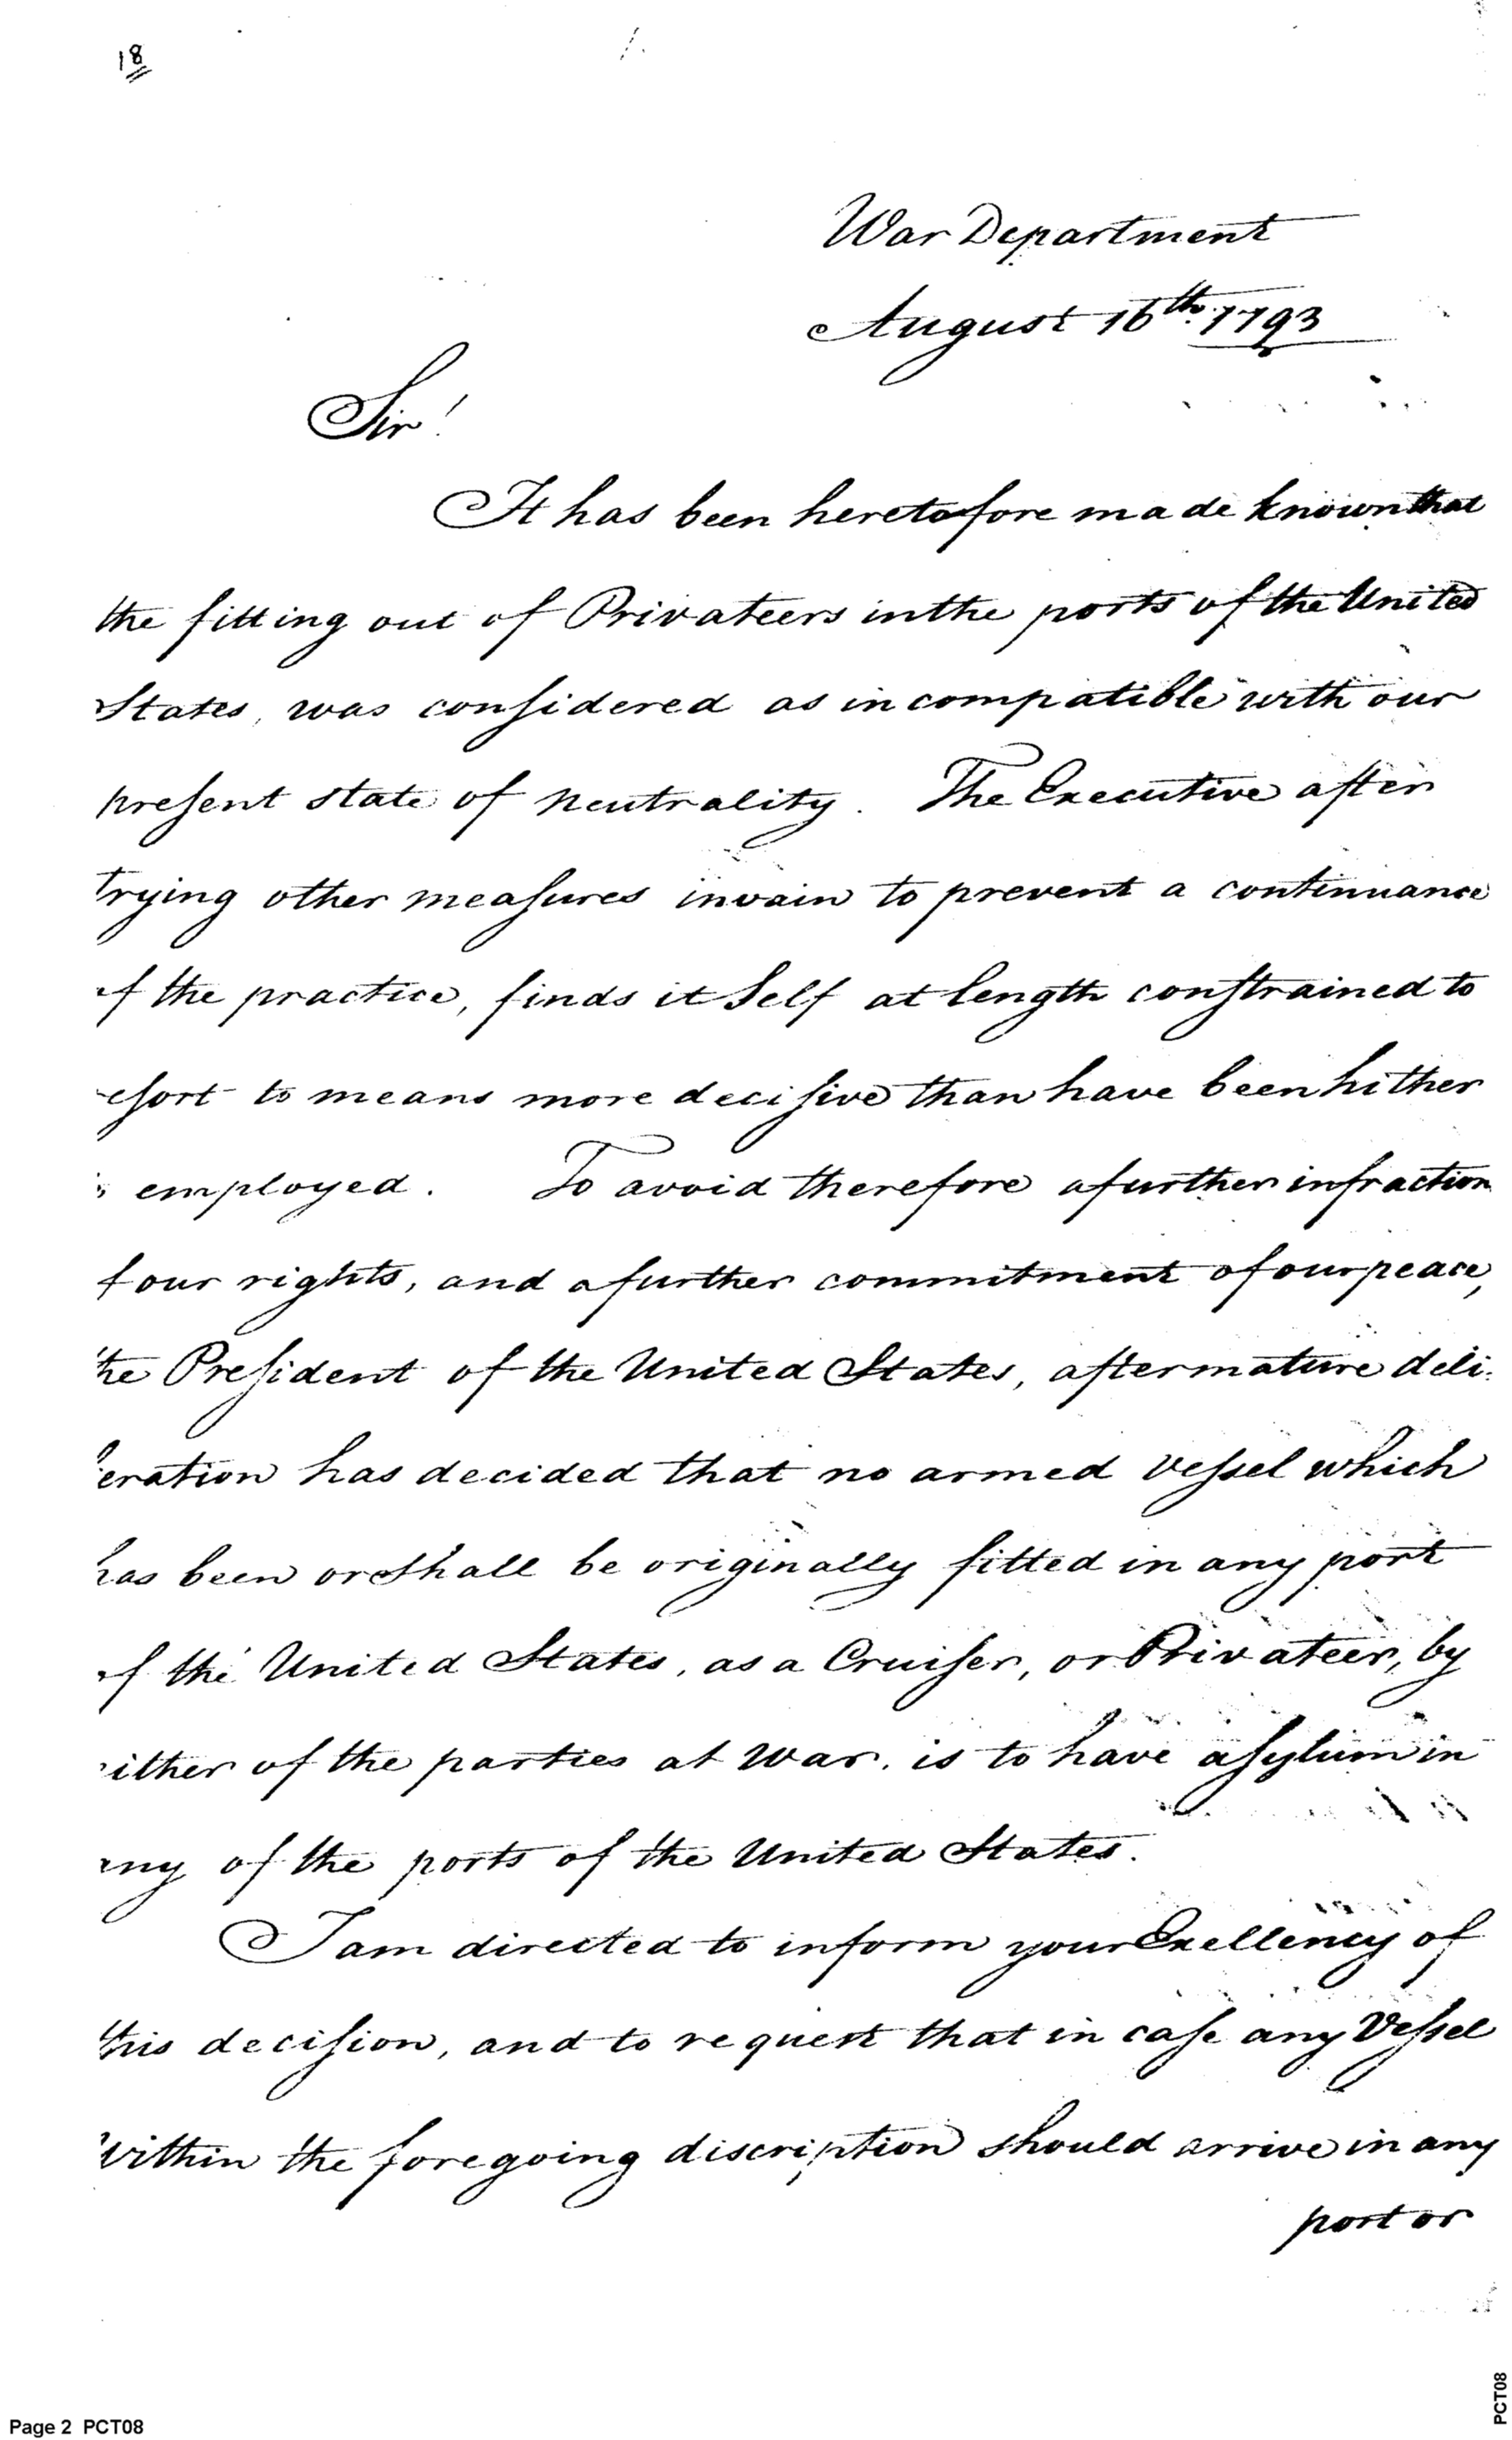 18
War Department
August 16th. 1793
Sir!
It has been heretofore made known that
the fitting out of Privateers in the ports of the United
States, was considered as incompatible with our
present state of neutrality. The Executive after
trying other measures in vain to prevent a continuance
of the practice, finds it Self at length constrained to
esort to means more decisive than have been hither
employed. To avoid therefore a further infraction
f our rights, and a further commitment of our peace,
the President of the United States, after mature deli:
beration has decided that no armed vessel which
has been or Shall be originally fitted in any port
of the United States, as a Cruiser, or Privateer, by
either of the parties at war, is to have asylum in
any of the ports of the United States.
I am directed to inform your Exellency of
this decision, and to request that in case any Vessel
within the foregoing discription should arrive in any
port or
Page 2 PCT08
PCT08